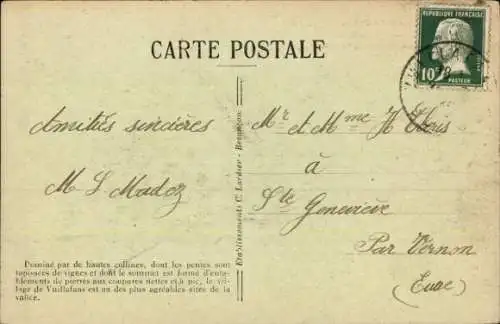 RÉPUBLIQUE FRANÇAISE
10c
PASTEUR
CARTE POSTALE
Amitiés sincères
M L Madoz
Mr et Mme H
à
Ste Geneviève
Par Vernon
(Eure)
Etablissements C. Lardier - Besançon
Dominé par de hautes collines, dont les pentes sont
tapissées de vignes et dont le sommet est formé d'enta-
blements de pierres aux coupures nettes et à pic, le vil-
lage de Vuillafans est un des plus agréables sites de la
vallée.